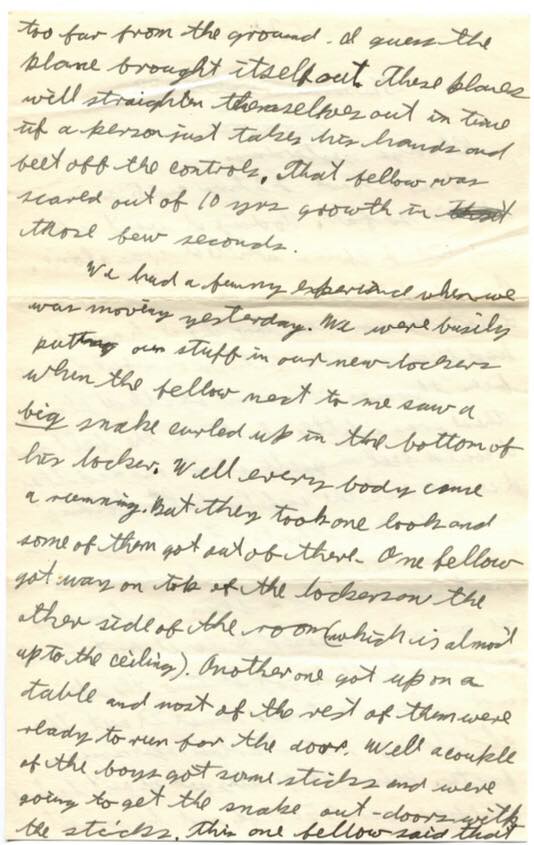 too far from the ground. I guess the
plane brought itself out. These planes
will straighten themselves out in time
if a person just takes his hands and
feet off the controls. That fellow was
scared out of 10 yrs growth in
those few seconds.
We had a funny experience when we
was moving yesterday. We were busily
putting our stuff in our new lockers
when the fellow next to me saw a
big snake curled up in the bottom of
his locker. Well every body came
a running. But they took one look and
some of them got out of there. One fellow
got way on top of the lockers on the
other side of the room (which is almost
up to the ceiling). Another one got up on a
table and most of the rest of them were
ready to run for the door. Well a couple
of the boys got some sticks and were
going to get the snake out-doors with
the sticks. This one fellow said that